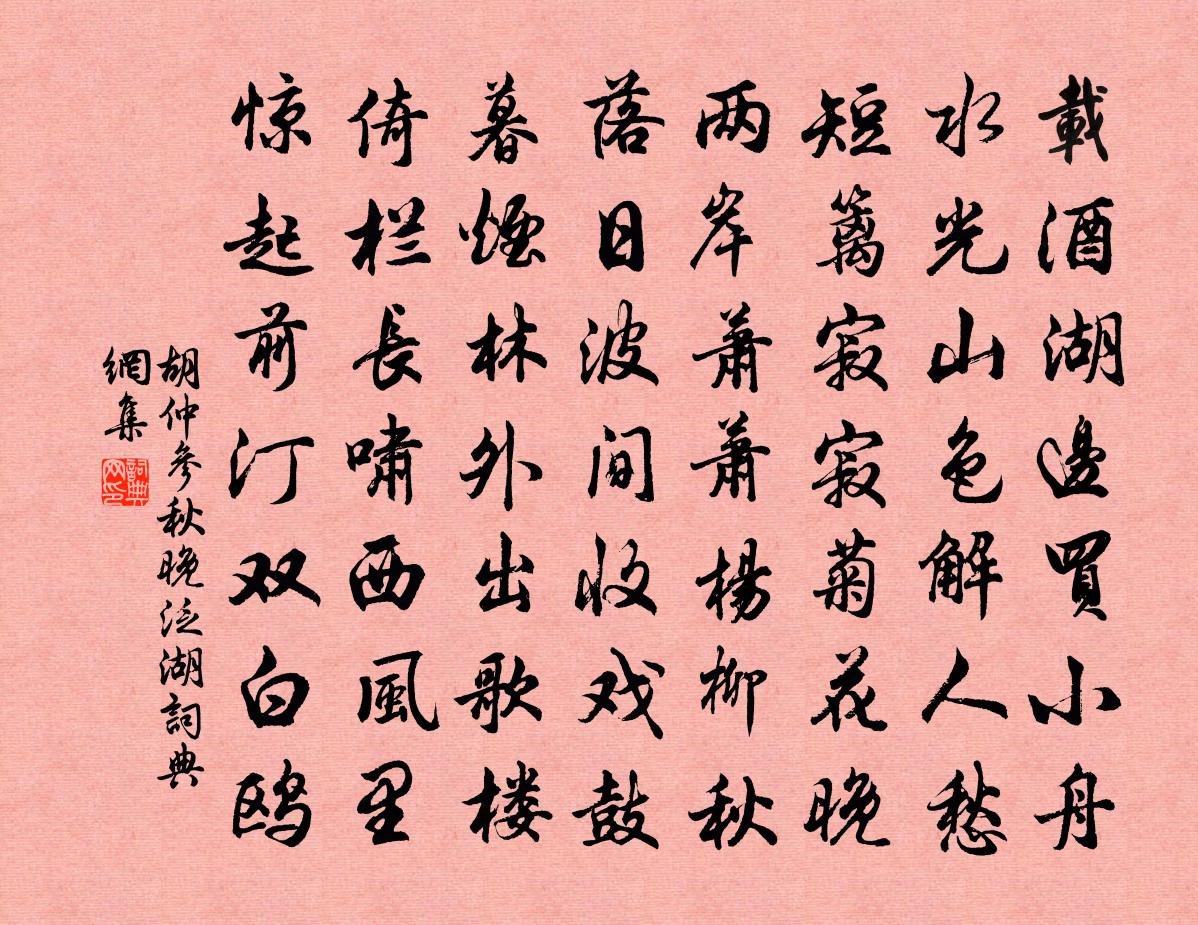 載酒湖邊買小舟
水光山色解人愁
短籬寂寂菊花晚
两岸萧萧楊柳秋
落日波间收戏鼓
暮煙林外出歌楼
倚栏長啸西風里
惊起前汀双白鸥
胡仲参秋晚泛湖詞典
網集
詞典网印